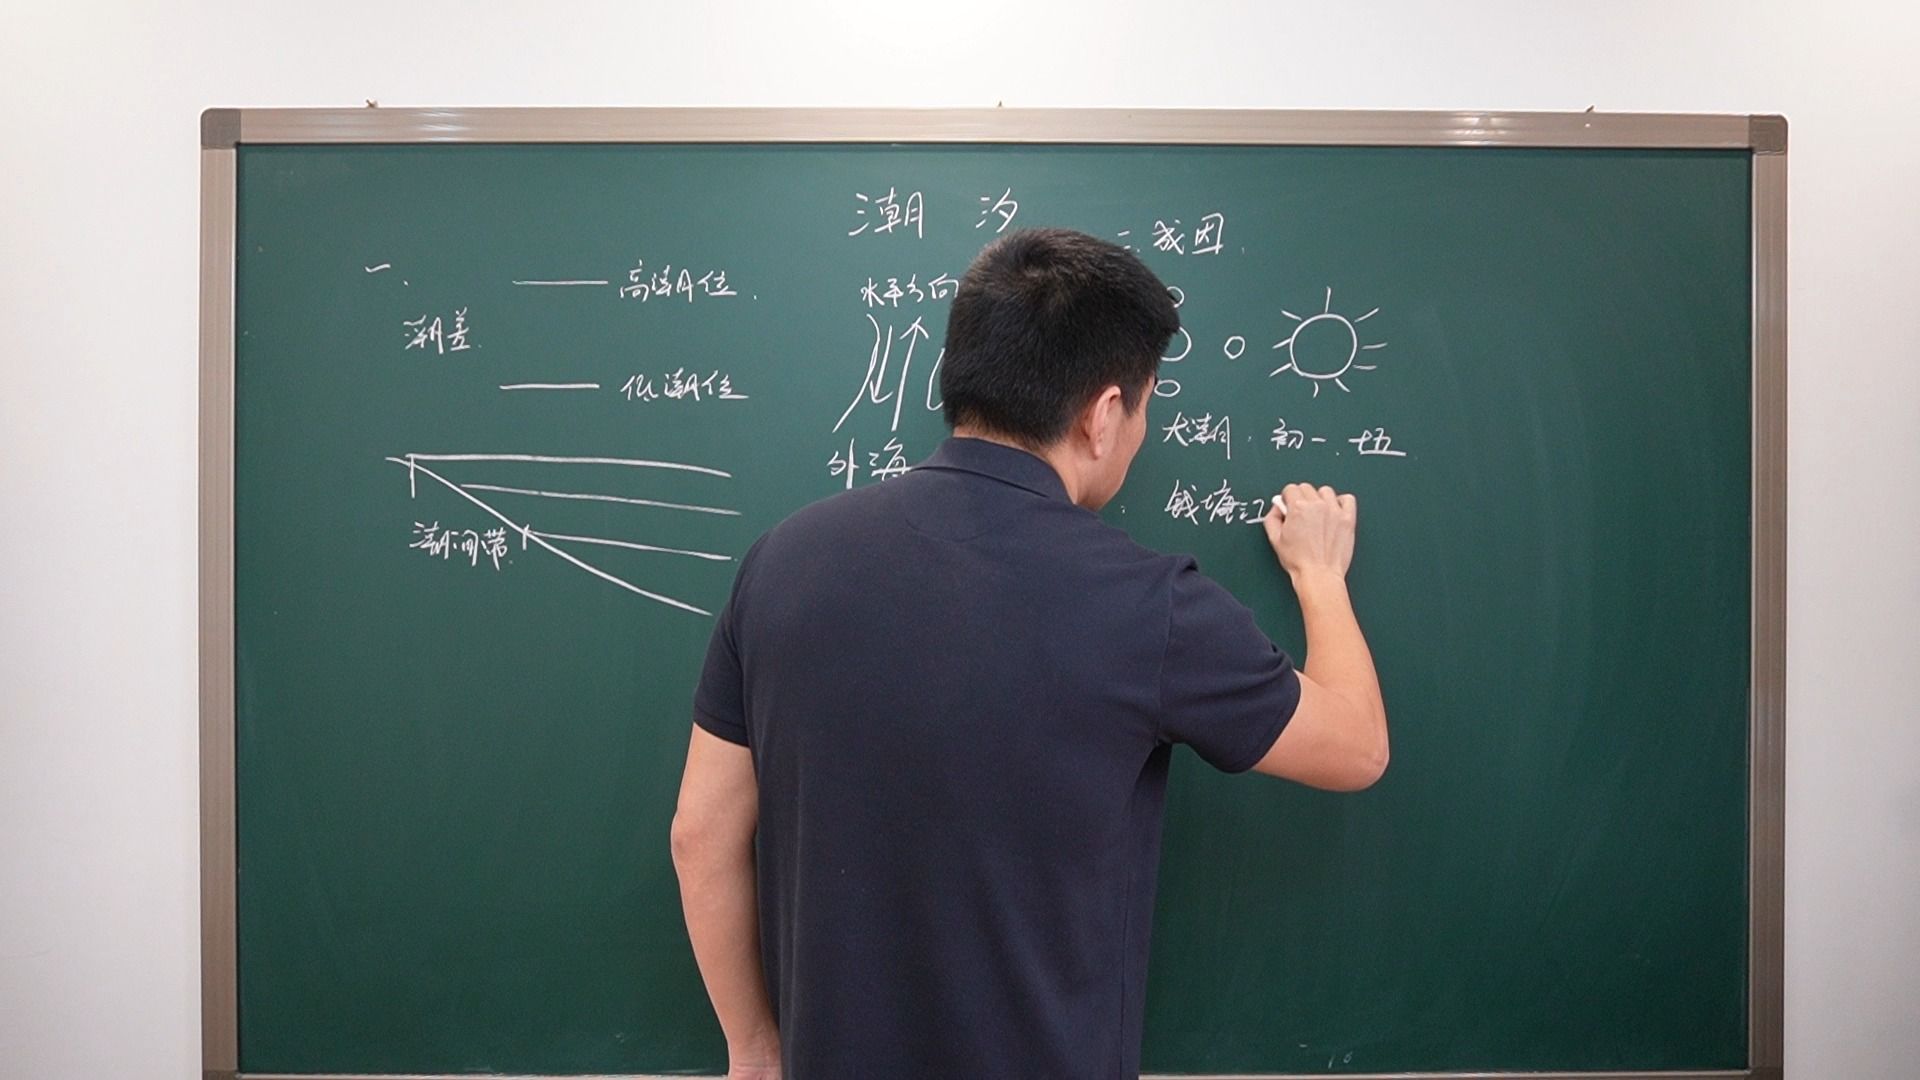 潮 汐
一、
高潮位
潮差
低潮位
潮间带
水平方向
外海
二、成因
大潮：初一、十五
钱塘江